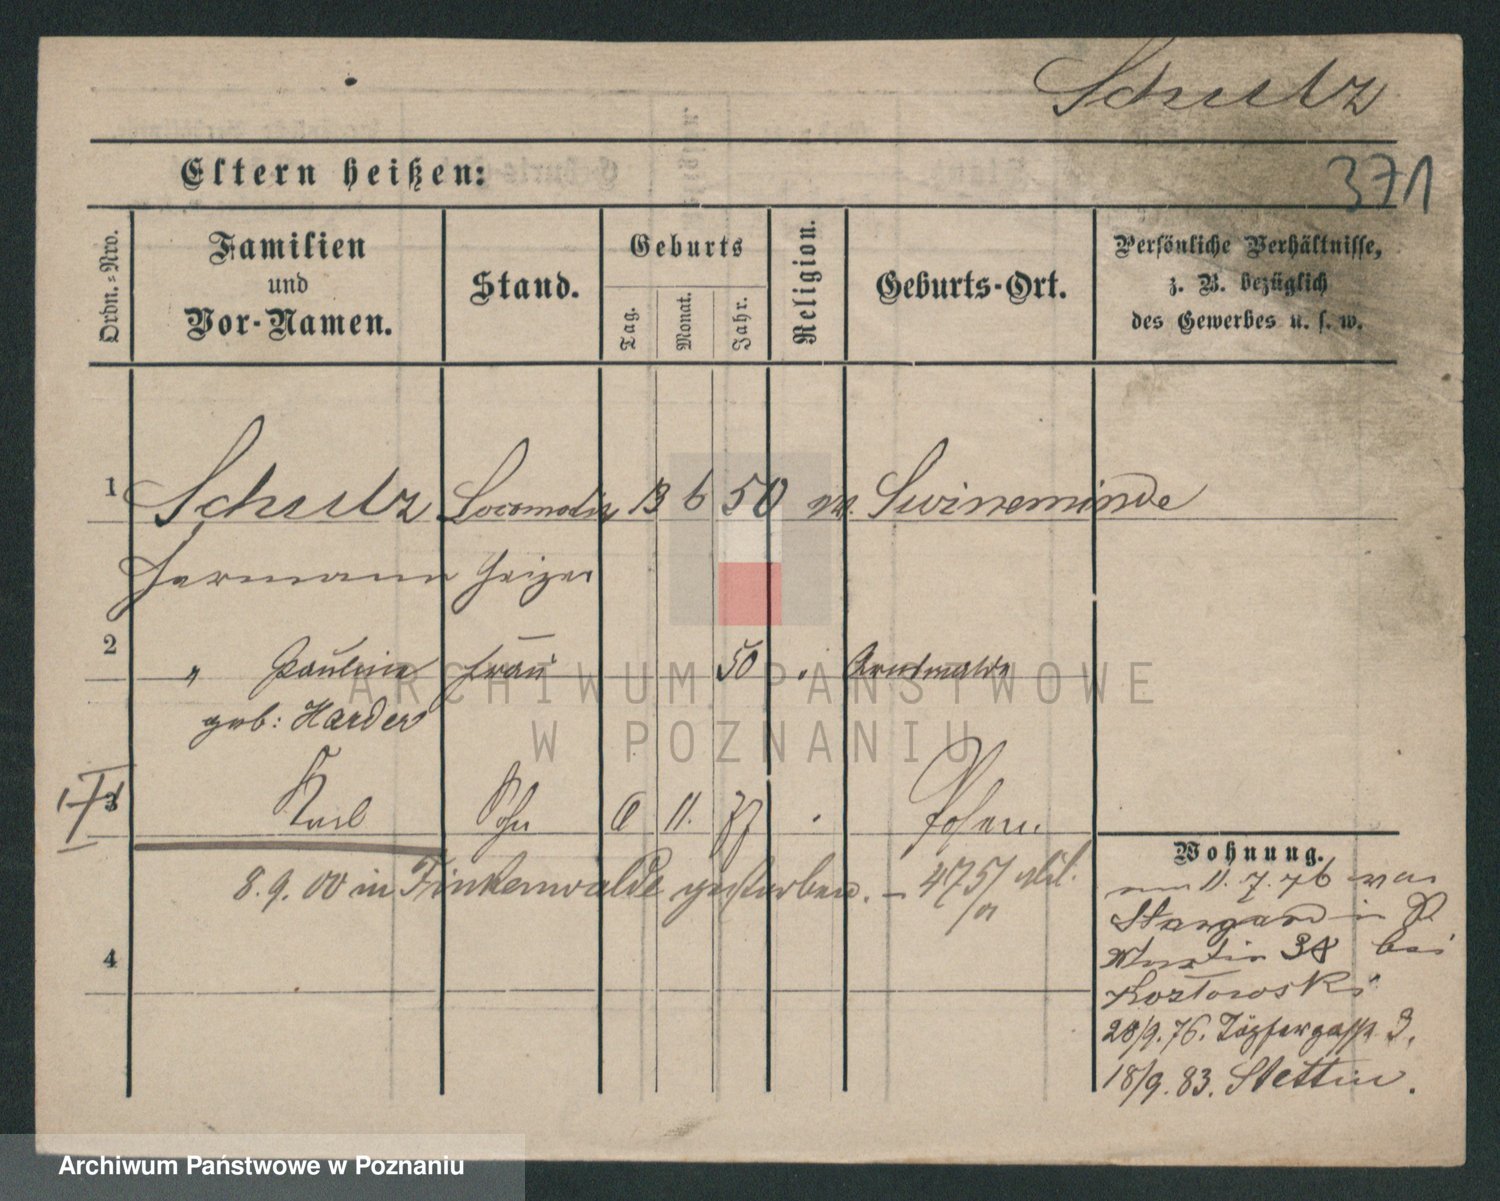 Schulz
Eltern heißen:
371
Ordn.-Nro.
Familien
und
Vor-Namen.
Stand.
Geburts
Tag.
Monat.
Jahr.
Religion.
Geburts-Ort.
Persönliche Verhältnisse,
z. B. bezüglich
des Gewerbes u. s. w.
1 Schulz Locomotiv 13 6 50 ev. Swineminde
Hermann Heizer
2 " Pauline Frau 50 Arnswalde
geb: Harder
3 Karl Sohn 6 11. 77 Posen
8.9.00 in Finkenwalde gestorben. – 475/
4
Wohnung.
11.7.76 von
Stargard in
Martin 38 bei
Kozlowski
28/9.76. Töpfergasse 3.
18/9.83. Stettin.
ARCHIWUM PAŃSTWOWE
W POZNANIU
Archiwum Państwowe w Poznaniu